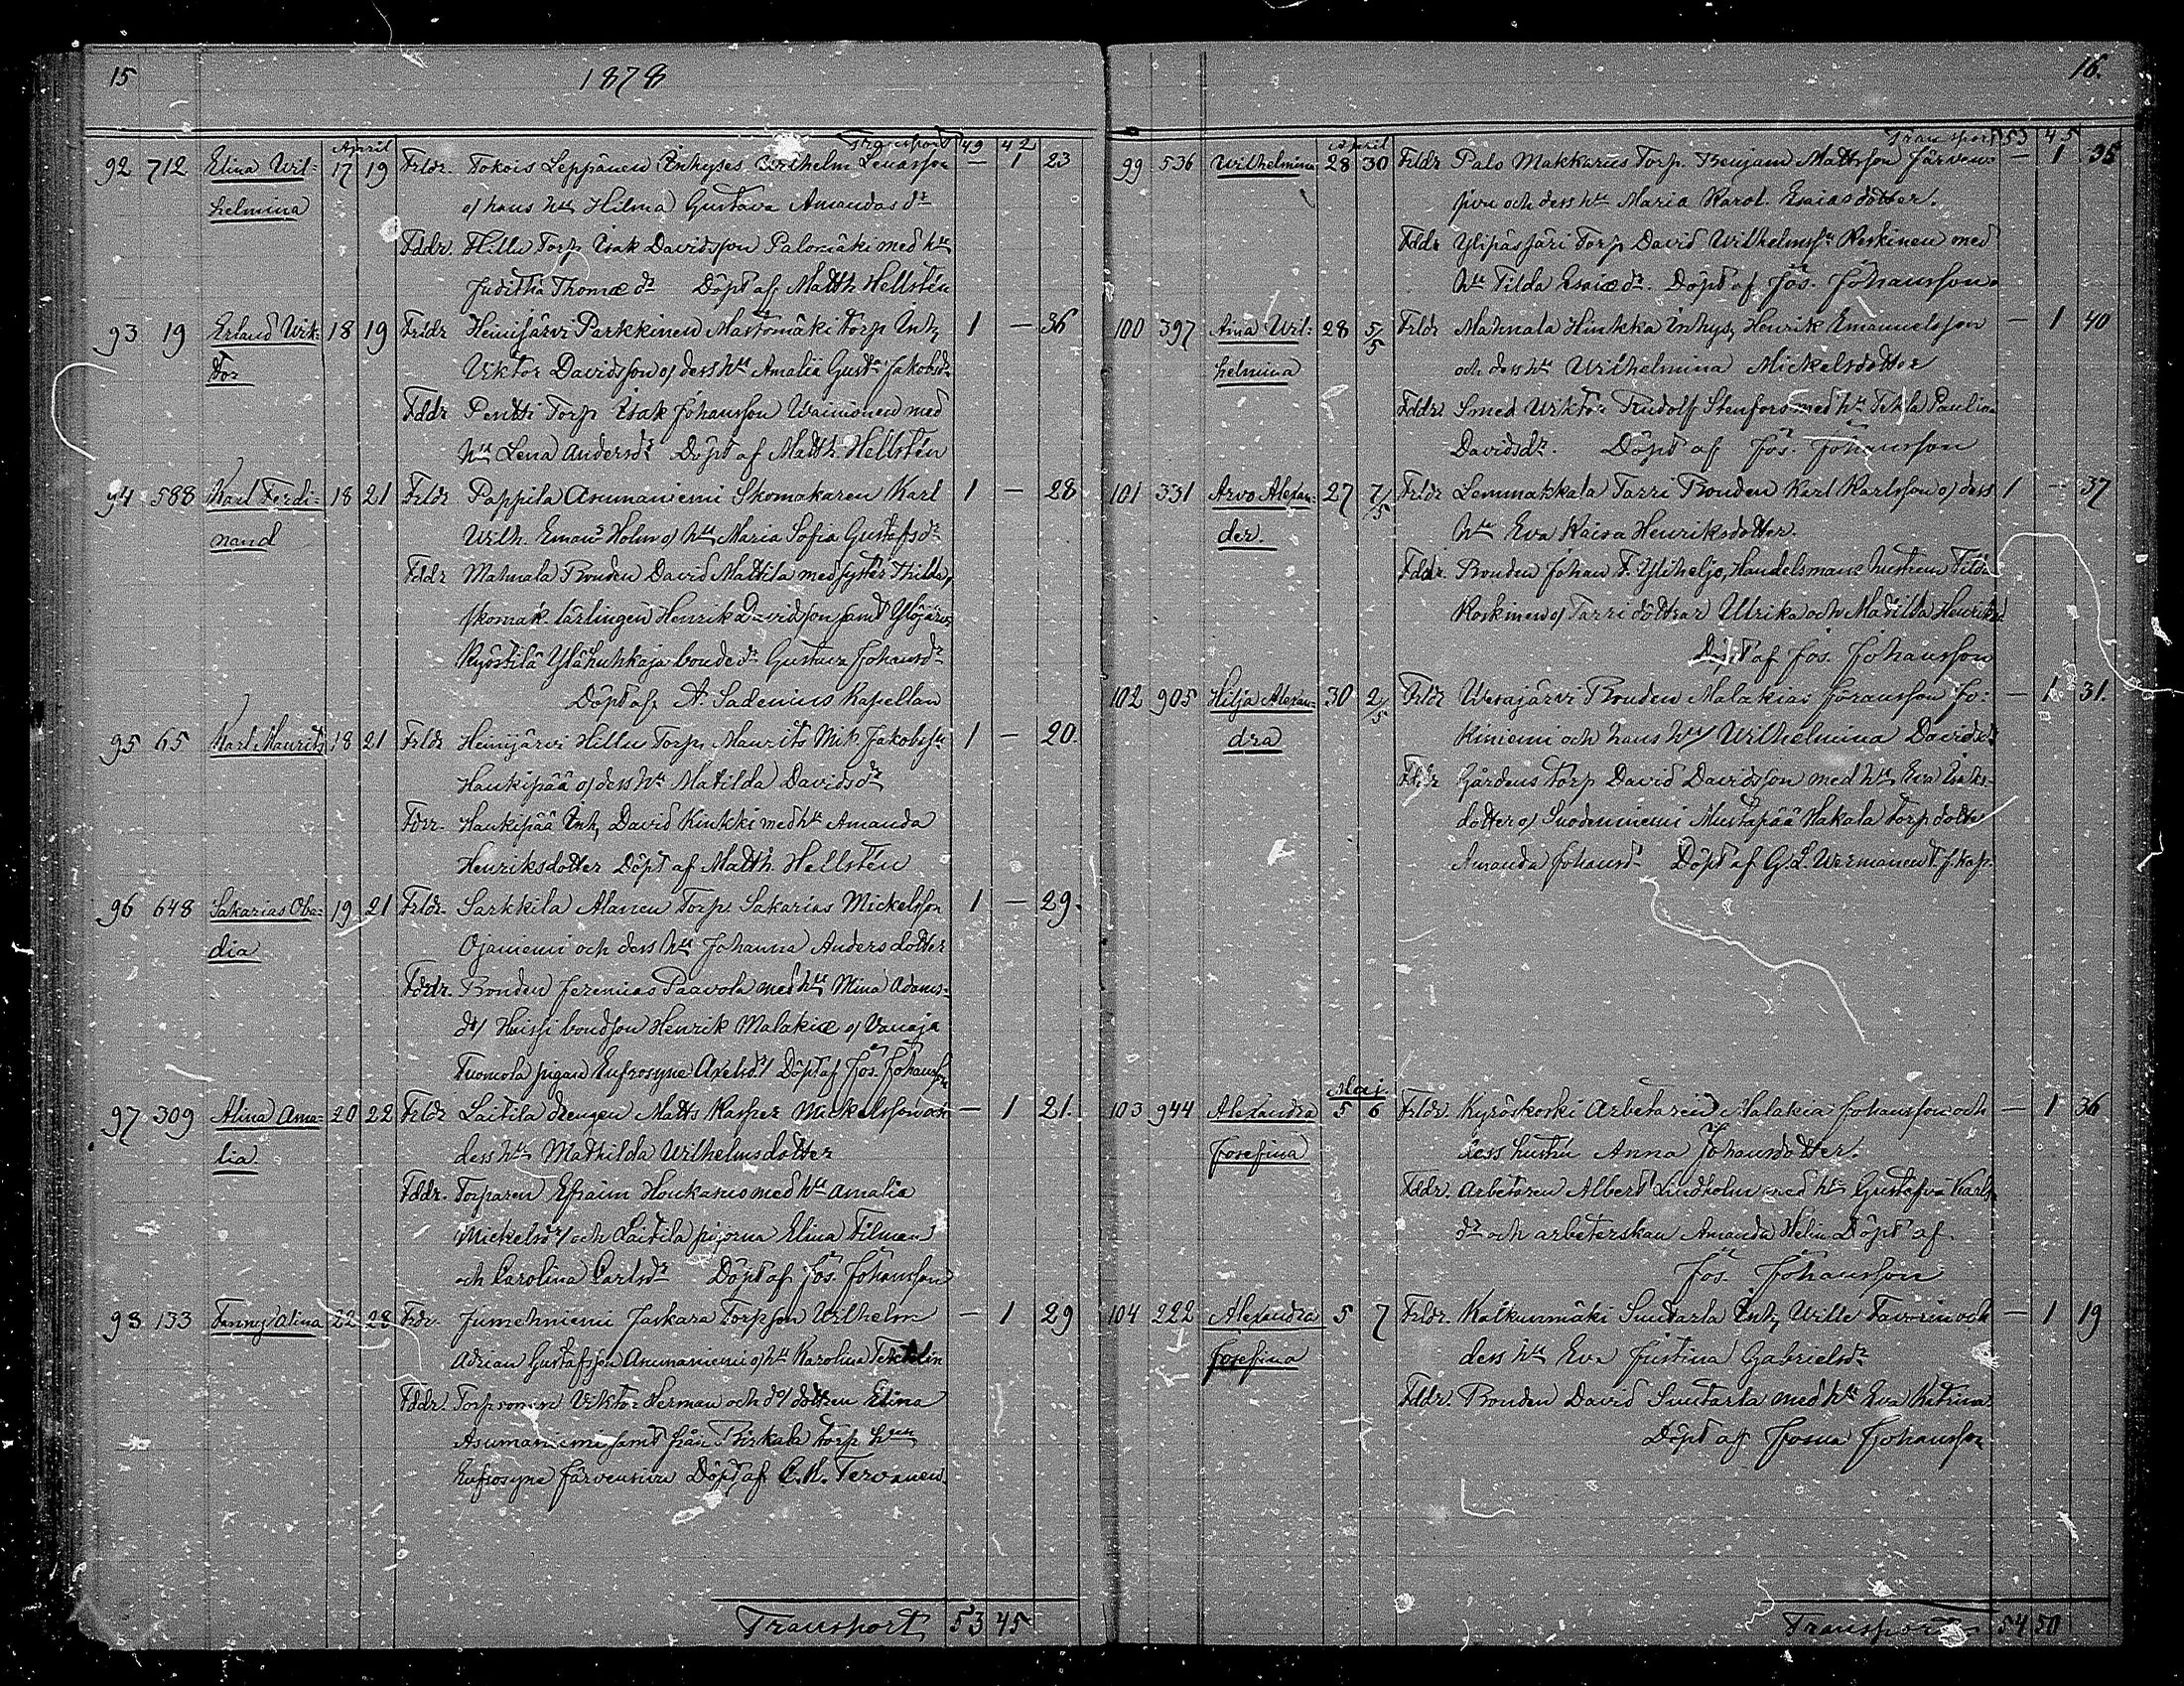 15
1878
April
Transport 49 42
92 712 Elina Wil- 17 19 Frldr. Tokois Leppänen Inhyses Wilhelm Lenasson — 1 23
helmina o/ hans hu Hilma Gustava Amandas dr
Fddr. Hillu Torp Isak Davidsson Palomäki med hu
Juditha Thomæ dr Döpt af Matth Hellstén
93 19 Erland Wik- 18 19 Frldr Heinijärvi Parkkinen Mastomäki torp Inh, 1 — 36
tor Viktor Davidsson o/ dess hu Amalia Gust. Jakobsdr
Fddr Pentti Torp Isak Johansson Wainionen med
hu Lena Andersdr Döpt af Matth. Hellstén
94 588 Karl Ferdi- 18 21 Frldr Pappila Asumaniemi Skomakaren Karl 1 — 28
nand Wilh. Emans Holm o/ hu Maria Sofia Gustafsdr
Fddr Mahnala Bonden David Mattila med syster Thilda,
skomak. lärlingen Henrik Davidsson samt Ylöjärvi
Kyöstilä Ylähuhkaja bondedr Gustava Johansdr
Döpt af A. Sadenius Kapellan
95 65 Karl Maurits 18 21 Frldr Heinijärvi Hillu Torp, Maurits Mik Jakobsson 1 — 20.
Haukipää o/ dess hu Matilda Davidsdr
Fddr. Haukipää Inh, David Kinkki med hu Amanda
Henriksdotter Döpt af Matth. Hellstén
96 648 Sakarias Oba- 19 21 Frldr. Sarkkila Alanen Torp. Sakarias Mickelsson 1 — 29.
dia Ojaniemi och dess hu Johanna Andersdotter
Fddr. Bonden Jeremias Paavola med hu Mina Adams-
dr/ Haissi bondson Henrik Malakiæ o/ Vanaja
Tuomola pigan Eufrosyne Axelsdr/ Döpt af Jos. Johansson
97 309 Alina Ama- 20 22 Frldr Laitila drengen Matts Kasper Mickelsson och — 1 21.
lia. dess hu Mathilda Wilhelmsdotter
Fddr. Torparen Efraim Honkanio med hu Amalia
Mickelsdr/ och Laitila pigorna Elina Filman
och Carolina Carlsdr Döpt af Jos. Johansson
98 133 Fanny Alina 22 28 Frdr. Jumehniemi Jaskara Torpson Wilhelm — 1 29
Adrian Gustafsson Asumaniemi o/ hu Karolina
Fddr. Torpsonen Viktor Herman och d:o/ dottren Elina
Asumaniemi samt från Birkala torp hu
Eufrosyne Järvensivu Döpt af C. K. Tervanen.
Transport 53 45
16.
April
Transport 53 45
99 536 Wilhelmina 28 30 Frldr Palo Makkarus Torp. Benjam Mattsson Järven- — 1 35
pää och dess hu Maria Karol. Esaiasdotter.
Fddr Ylipässäri Torp David Wilhelmss Koskinen med
hu Tilda Esaiædr. Döpt af Jos. Johansson
100 397 Aina Wil- 28 5/5 Frldr Mahnala Hinkka Inhys, Henrik Emanuelsson — 1 40
helmina och dess hu Wilhelmina Mickelsdotter
Fddr Smed Wiktor Rudolf Stenfors med hu Tekla Paulina
Davidsdr. Döpt af Jos. Johansson
101 331 Arvo Alexan- 27 7/5 Frldr Lemmakkala Tarri Bonden Karl Karlsson o/ dess 1 — 37
der. hu Eva Kaisa Henriksdotter.
Fddr. Bonden Johan F. Yliheljo, Handelsmans hustrun Tilda
Koskinen o/ Tarri döttrar Ulrika och Matilda Henriksd
Döpt af Jos. Johansson
102 905 Hilja Alexan- 30 2/5 Frldr Wesajärvi Bonden Malakias Joransson Jo- — 1 31.
dra kiniemi och hans hu/ Wilhelmina Davidsdr
Fddr Gårdens torp David Davidsson med hu Eva Isaks-
dotter o/ Suodenniemi Mustapää Hakala torp dotter
Amanda Johansdr Döpt af G. L. Warmanen t.f. kap.
Maj
103 944 Alexandra 5 6 Frldr. Kyröskoski Arbetaren Malakias Johansson och — 1 36
Josefina dess hustru Anna Johansdotter.
Fddr. Arbetaren Albert Lindholm med hu Gustafva Karls
dr och arbeterskan Amanda Helin Döpt af
Jos. Johansson
104 222 Alexandra 5 7 Frldr. Kalkunmäki Suutarla Inh, Wille Favorin och — 1 19
Josefina dess hu Eva Justina Gabrielsdr
Fddr. Bonden David Suutarla med hu Eva Katrina
Döpt af Josua Johansson
Transport 54 50